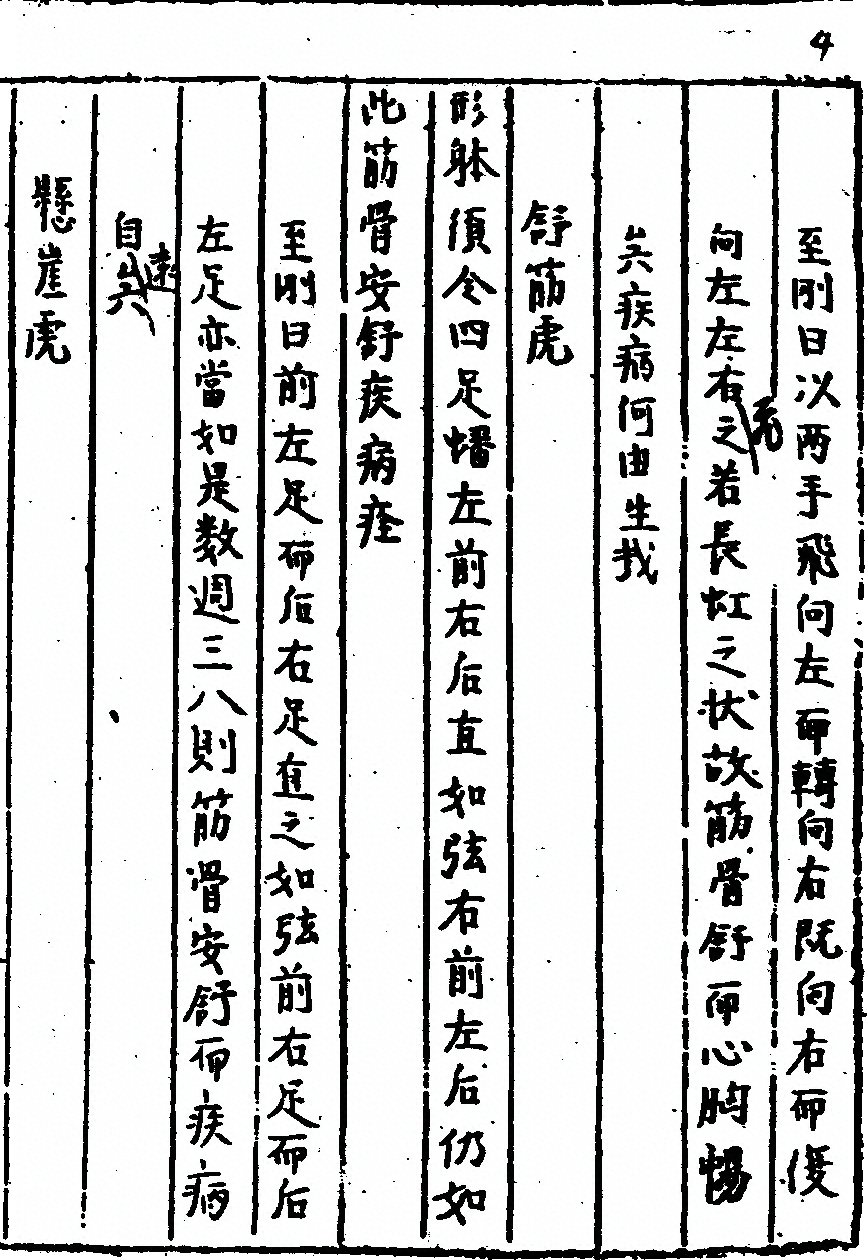 4
至剛日以两手飛向左而轉向右既向右而復
向左左右之若長虹之状故筋骨舒而心胸暢
矣疾病何由生哉
舒筋虎
形躰須令四足蟠左前右后直如弦右前左后仍如
此筋骨安舒疾病痊
至剛日前左足而后右足直之如弦前右足而后
左足亦當如是数週三八則筋骨安舒而疾病
自矣
懸崖虎